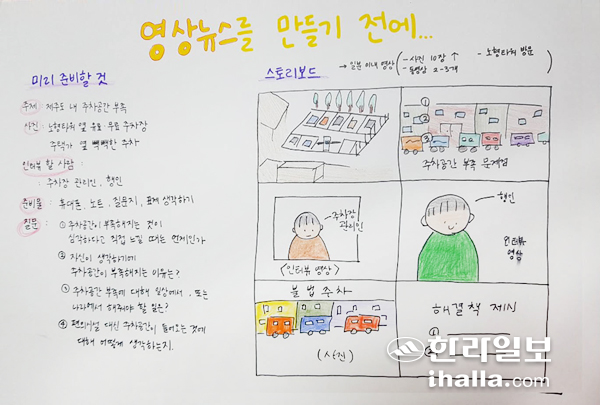 영상뉴스를 만들기 전에...
미리 준비할 것
주제 : 제주도 내 주차공간 부족
사진 : 노형타워 옆 유료·무료 주차장
주택가 옆 빽빽한 주차
인터뷰 할 사람 :
: 주차장 관리인, 행인
준비물 : 휴대폰, 노트, 질문지, 표제 생각하기
질문 : ① 주차공간이 부족해지는 것이
심각하다고 직접 느낄 때는 언제인가
② 자신이 생각하기에
주차공간이 부족해지는 이유는?
③ 주차공간 부족에 대해 일상에서, 또는
나라에서 해줘야 할 일은?
④ 편의시설 대신 주차공간이 들어오는 것에
대해 어떻게 생각하는지.
스토리보드
→ 일분 이내 영상
- 사진 10장 ↑
- 동영상 2-3개
- 노형타워 방문
①
②
③
주차공간 부족 문제점
주차장
관리인
<인터뷰 영상>
행인
인터뷰
영상
불법주차
(사진)
해결책 제시
①
②
한라일보
ihalla.com